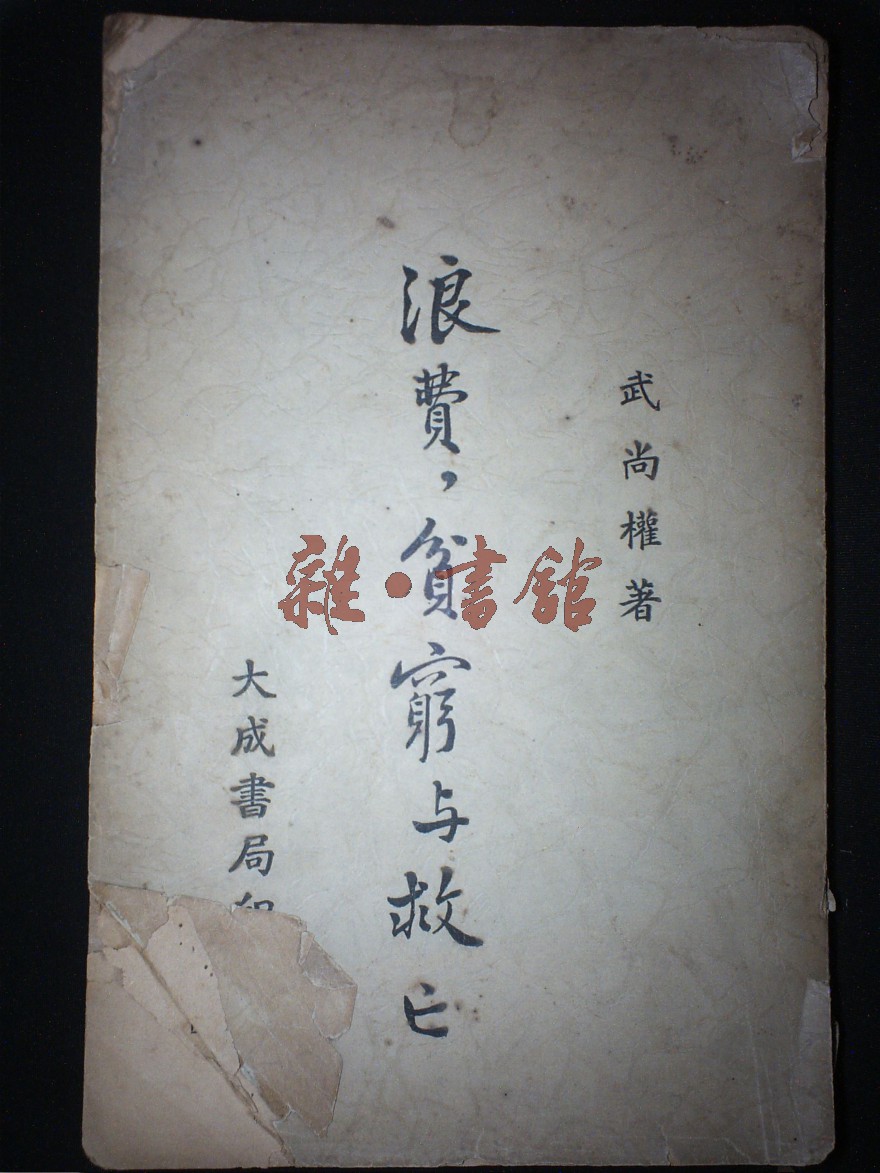 武尚權著
浪費，貧窮与救亡
大成書局
雜·書館